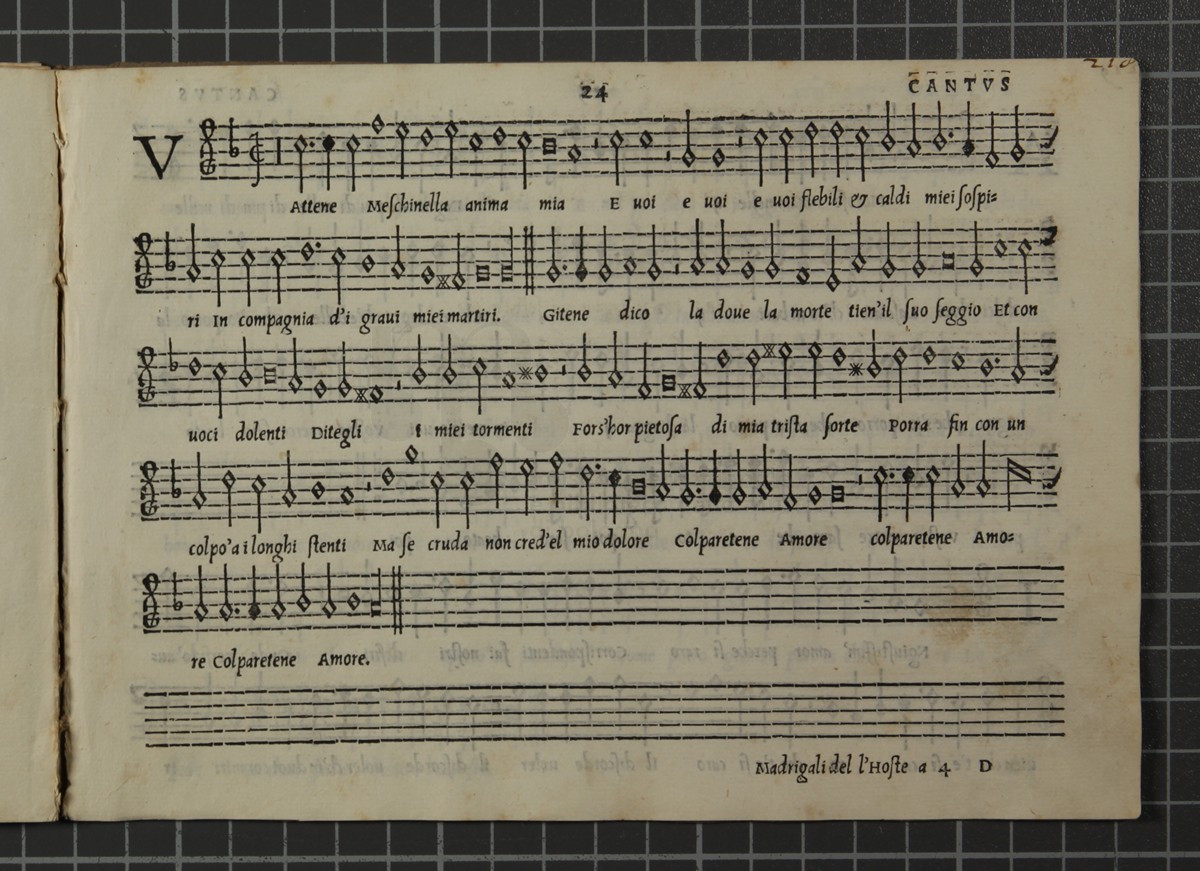 24
CANTVS
V Attene Meſchinella anima mia E uoi e uoi e uoi flebili & caldi miei ſoſpi=
ri In compagnia d'i graui miei martiri. Gitene dico la doue la morte tien'il ſuo ſeggio Et con
uoci dolenti Ditegli i miei tormenti Fors'hor pietoſa di mia triſta ſorte Porra fin con un
colpo'a i longhi ſtenti Ma ſe cruda non cred'el mio dolore Colparetene Amore colparetene Amo=
re Colparetene Amore.
Madrigali del l'Hoſte a 4 D